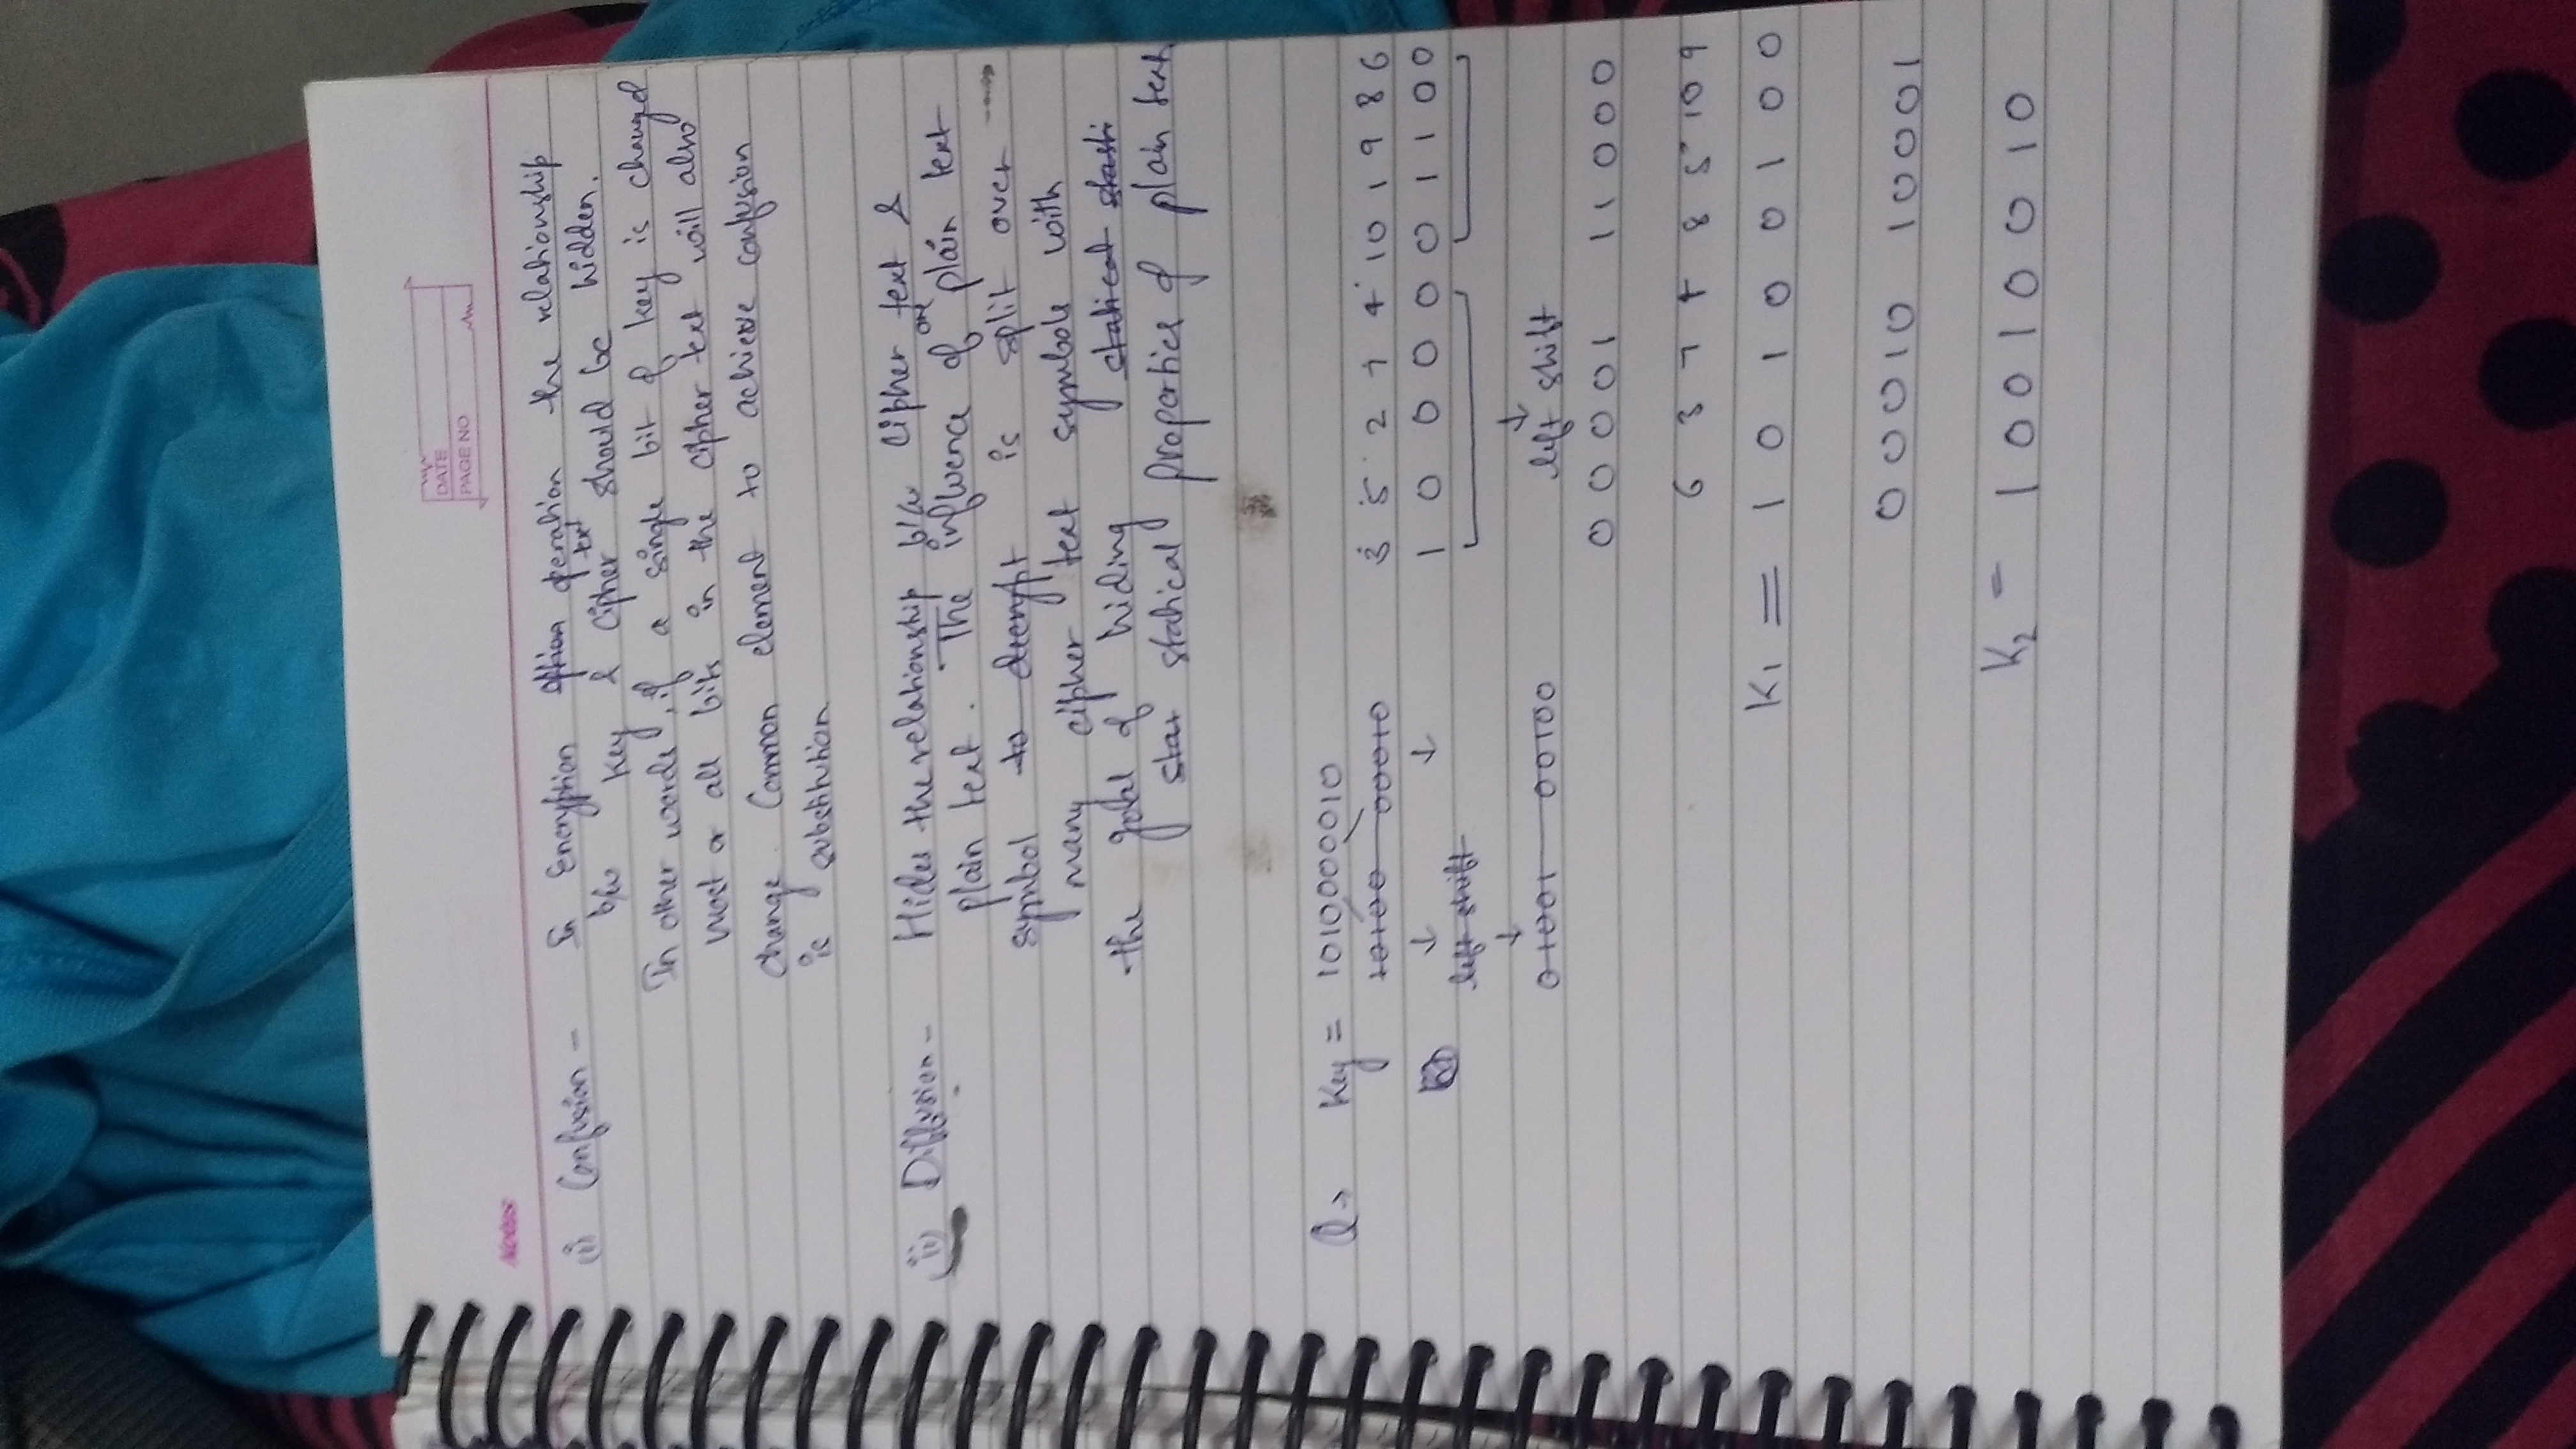 DATE
PAGE NO
NOTES
(i) Confusion - In Encryption option operation the relationship
b/w key & cipher text should be hidden.
In other words, if a single bit of key is changed
most or all bits in the cipher text will also
change. Common element to achieve confusion
is substitution
(ii) Diffusion - Hides the relationship b/w cipher text &
plain text. The influence of one plain text
symbol to decrypt is split over
many cipher text symbols with
the goal of hiding statical stasti
star statical properties of plain text
Q→ Key = 1010000010
10100 00010 3 5 2 7 4 10 1 9 8 6
1 0 0 0 0 0 1 1 0 0
left shift
left shift
01001 00100
0 0 0 0 1 1 1 0 0 0
6 3 7 4 8 5 10 9
K1 = 1 0 1 0 0 1 0 0
0 0 0 1 0 1 0 0 0 1
K2 - 1 0 0 1 0 0 1 0